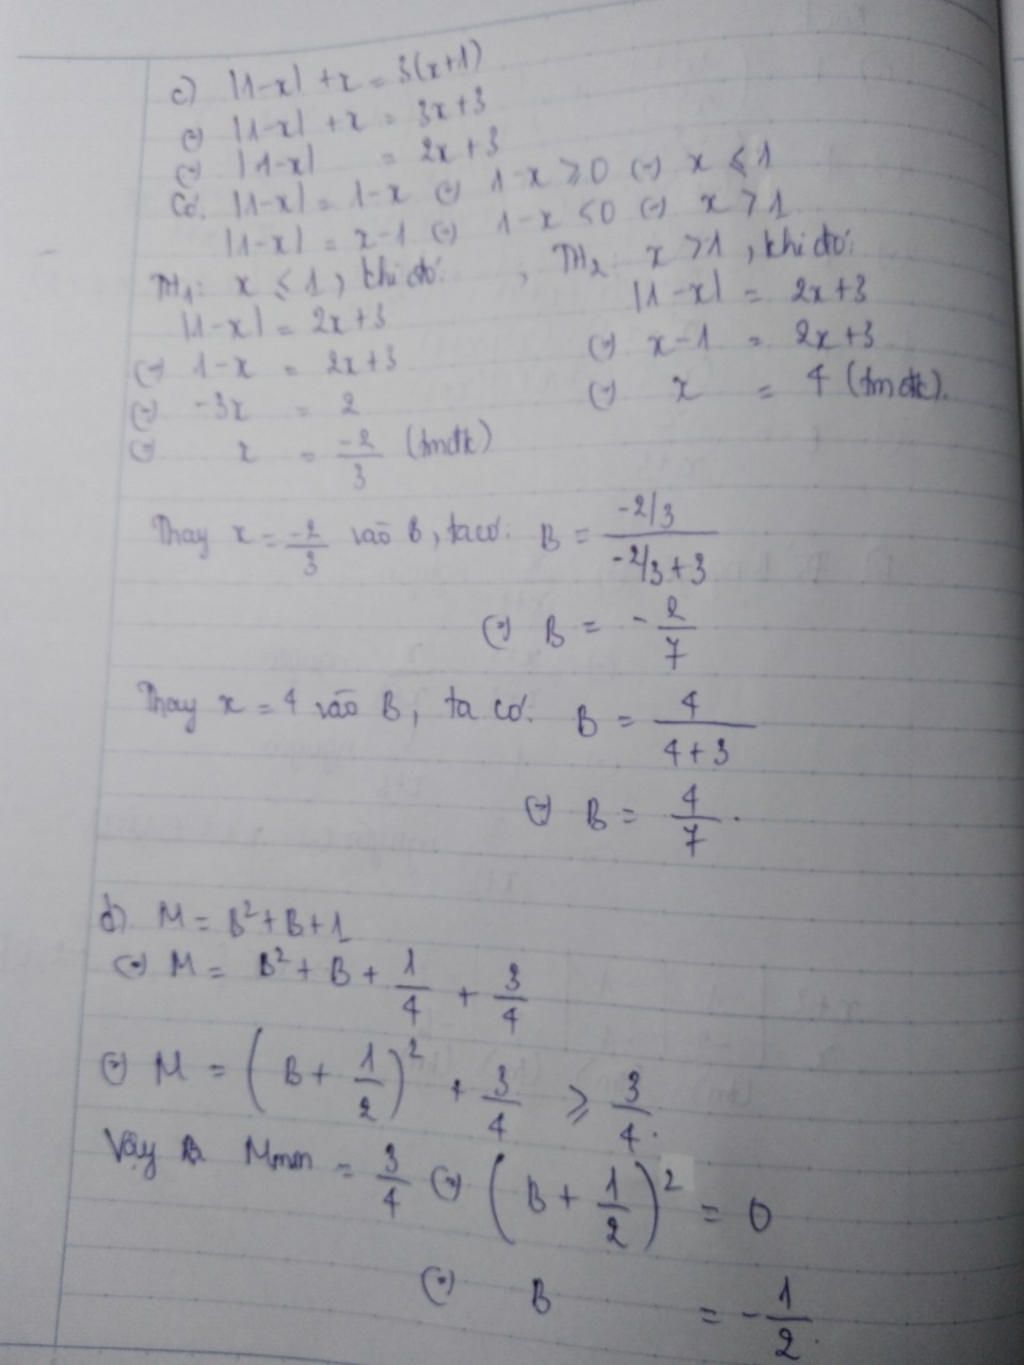 c) |1-x| + x = 3(x+1)
(=) |1-x| + x = 3x+3
(=) |1-x| = 2x+3
Có: |1-x| = 1-x (=) 1-x ≥ 0 (=) x ≤ 1
|1-x| = x-1 (=) 1-x < 0 (=) x > 1
TH1: x ≤ 1, khi đó: , TH2: x > 1, khi đó:
|1-x| = 2x+3 |1-x| = 2x+3
(=) 1-x = 2x+3 (=) x-1 = 2x+3
(=) -3x = 2 (=) x = 4 (tmđk).
(=) x = -2/3 (tmđk)
Thay x = -2/3 vào B, ta có: B = (-2/3)/(-2/3+3)
(=) B = -2/7
Thay x = 4 vào B, ta có: B = 4/(4+3)
(=) B = 4/7.
d) M = B²+B+1
(=) M = B²+B+1/4 + 3/4
(=) M = (B+1/2)² + 3/4 ≥ 3/4.
Vậy Mmin = 3/4 (=) (B+1/2)² = 0
(=) B = -1/2.